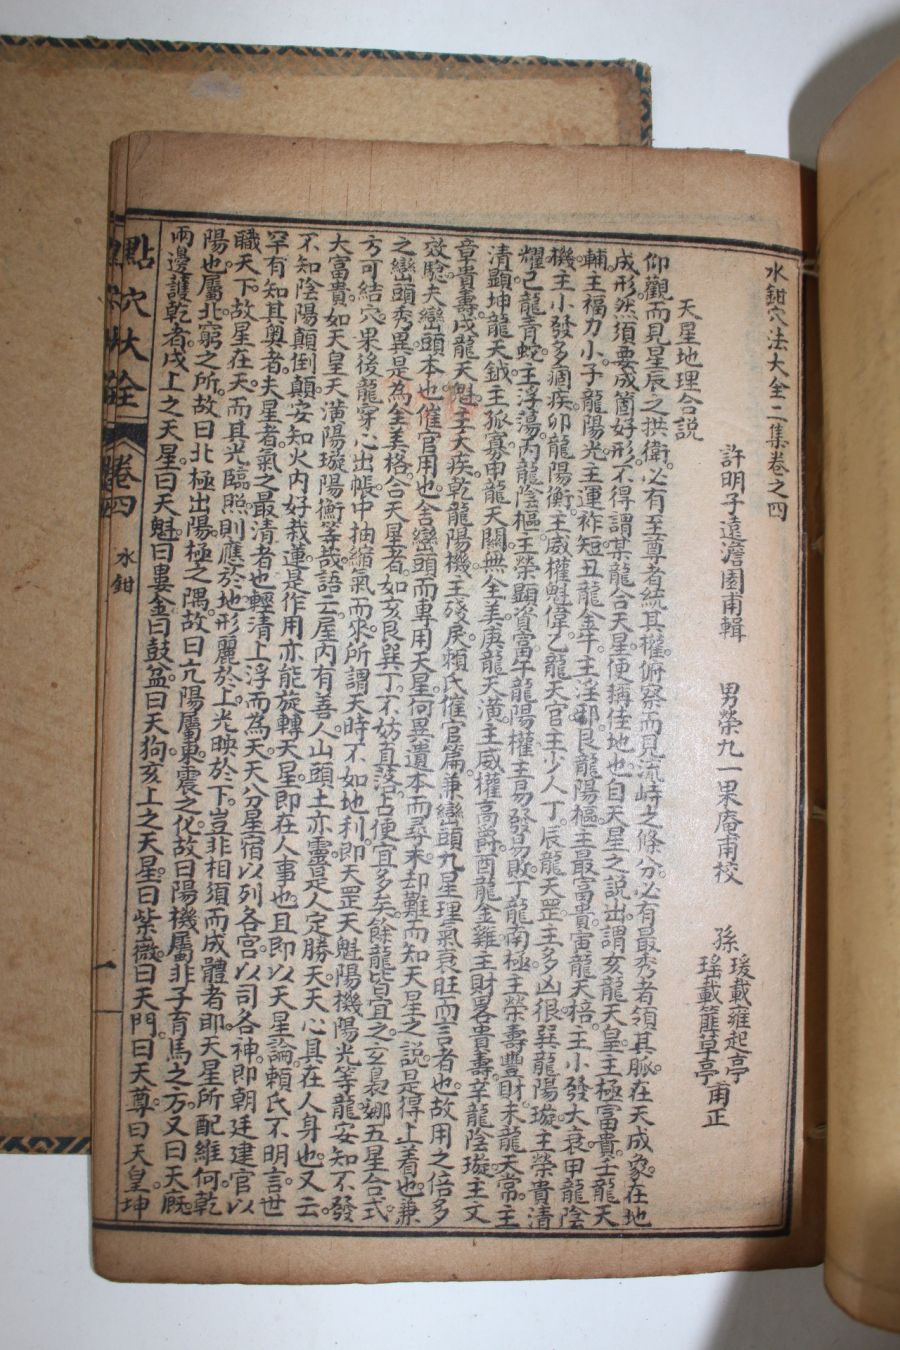 水鉗穴法大全二集卷之四
許明子遠澹園甫輯　男榮九一果庵甫校　孫瑗載雍起亭　瑤載簏草亭甫正
天星地理合説
仰觀而見星辰之拱衛。必有至尊者統其權。俯察而見流峙之條分。必有最秀者領其脈。在天成象。在地
成形。然須要成箇好形。不得謂某龍合天星。便稱佳地也。自天星之説出。謂亥龍天皇。主極富貴。壬龍天
輔。主福力小。子龍陽光。主運祚短。丑龍金牛。主淫邪。艮龍陽樞。主最富貴。寅龍天棓。主小發大衰。甲龍陰
機。主小發多痼疾。卯龍陽衡。主威權魁偉。乙龍天官。主少人丁。辰龍天罡。主多凶很。巽龍陽璇。主榮貴清
耀。巳龍青蛇。主浮蕩。丙龍陰樞。主榮顯貲富。午龍陽權。主易發易敗。丁龍南極。主榮壽豐財。未龍天常。主
清顯。坤龍天鉞。主孤寡。申龍天關。無全美。庚龍天潢。主威權高爵。酉龍金雞。主財畧貴壽。辛龍陰璇。主文
章貴壽。戌龍天魁。主大疾。乾龍陽機。主殘戾。賴氏催官篇。兼巒頭九星理氣衰旺而言者也。故用之倍多
效驗。夫巒頭本也。催官用也。舍巒頭而專用天星。何異遺本而尋末。却難而知天星之説。是得上着也。兼
之巒頭秀異。是為全美格。合天星者。如亥艮巽丁。不妨直落。占便宜多矣。餘龍皆宜之玄裊娜。五星合式。
方可結穴。果後龍穿心出帳。中抽縮氣而來。所謂天時不如地利。即天罡天魁陽機陽光等龍。安知不發
大富貴。如天皇天潢陽璇陽衡等哉。語云。屋内有善人。山頭土亦靈。是人定勝天。天心具在人身也。又云。
不知陰陽顛倒顛。安知火内好栽蓮。是作用亦能旋轉天星。即在人事也。且即以天星論。賴氏不明言。世
罕有知其奥者。夫星者。氣之最清者也。輕清上浮而為天。天八分星宿。以列各宮。以司各神。即朝廷建官。以
職天下。故星在天。而其光臨照。則應於地。形麗於上。光映於下。豈非相須而成體者耶。天星所配維何。乾
陽也。屬北窮之所。故曰北極。出陽極之隅。故曰亢陽。屬東震之化。故曰陽機。屬非子育馬之方。又曰天廐。
兩邊護乾者。戌上之天星。曰天魁。曰婁金。曰鼓盆。曰天狗。亥上之天星。曰紫薇。曰天門。曰天尊。曰天皇。坤
點穴大全　卷四　水鉗　一